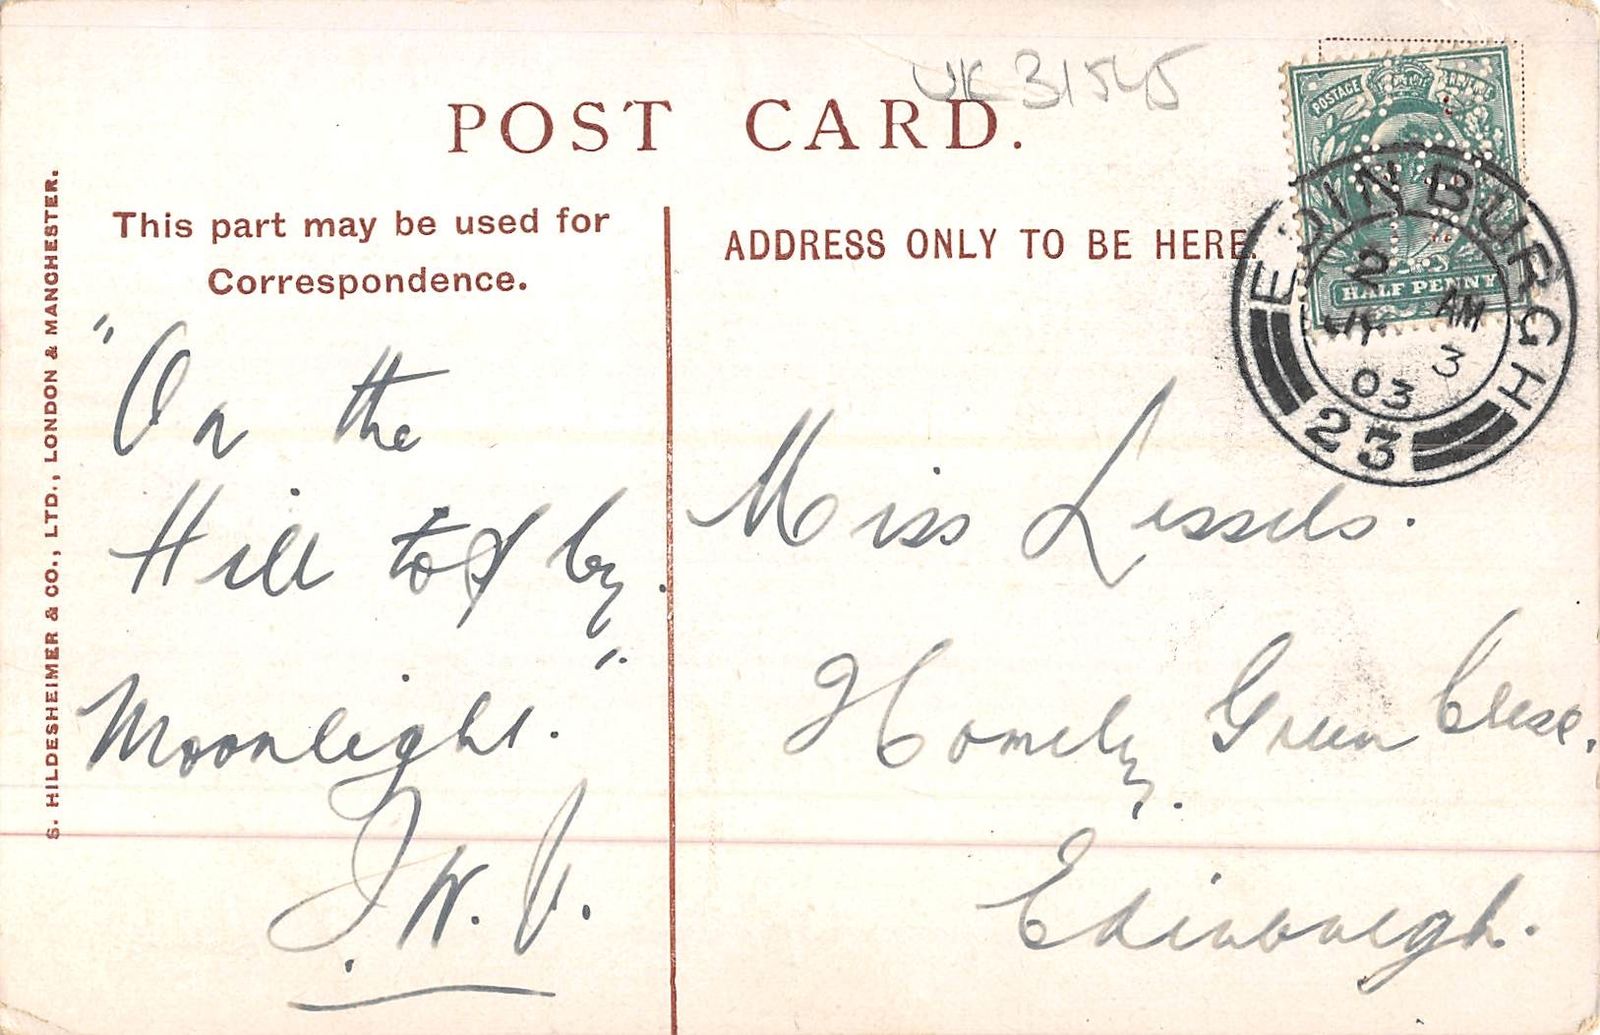 UK 31545
POST CARD.
This part may be used for
Correspondence.
ADDRESS ONLY TO BE HERE.
POSTAGE
HALF PENNY
EDINBURGH
2 AM
3
03
23
S. HILDESHEIMER & CO., LTD., LONDON & MANCHESTER.
"On the
Hill top by
Moonlight."
J.W.V.
Miss Lessels.
Homely Green Close.
Edinburgh.